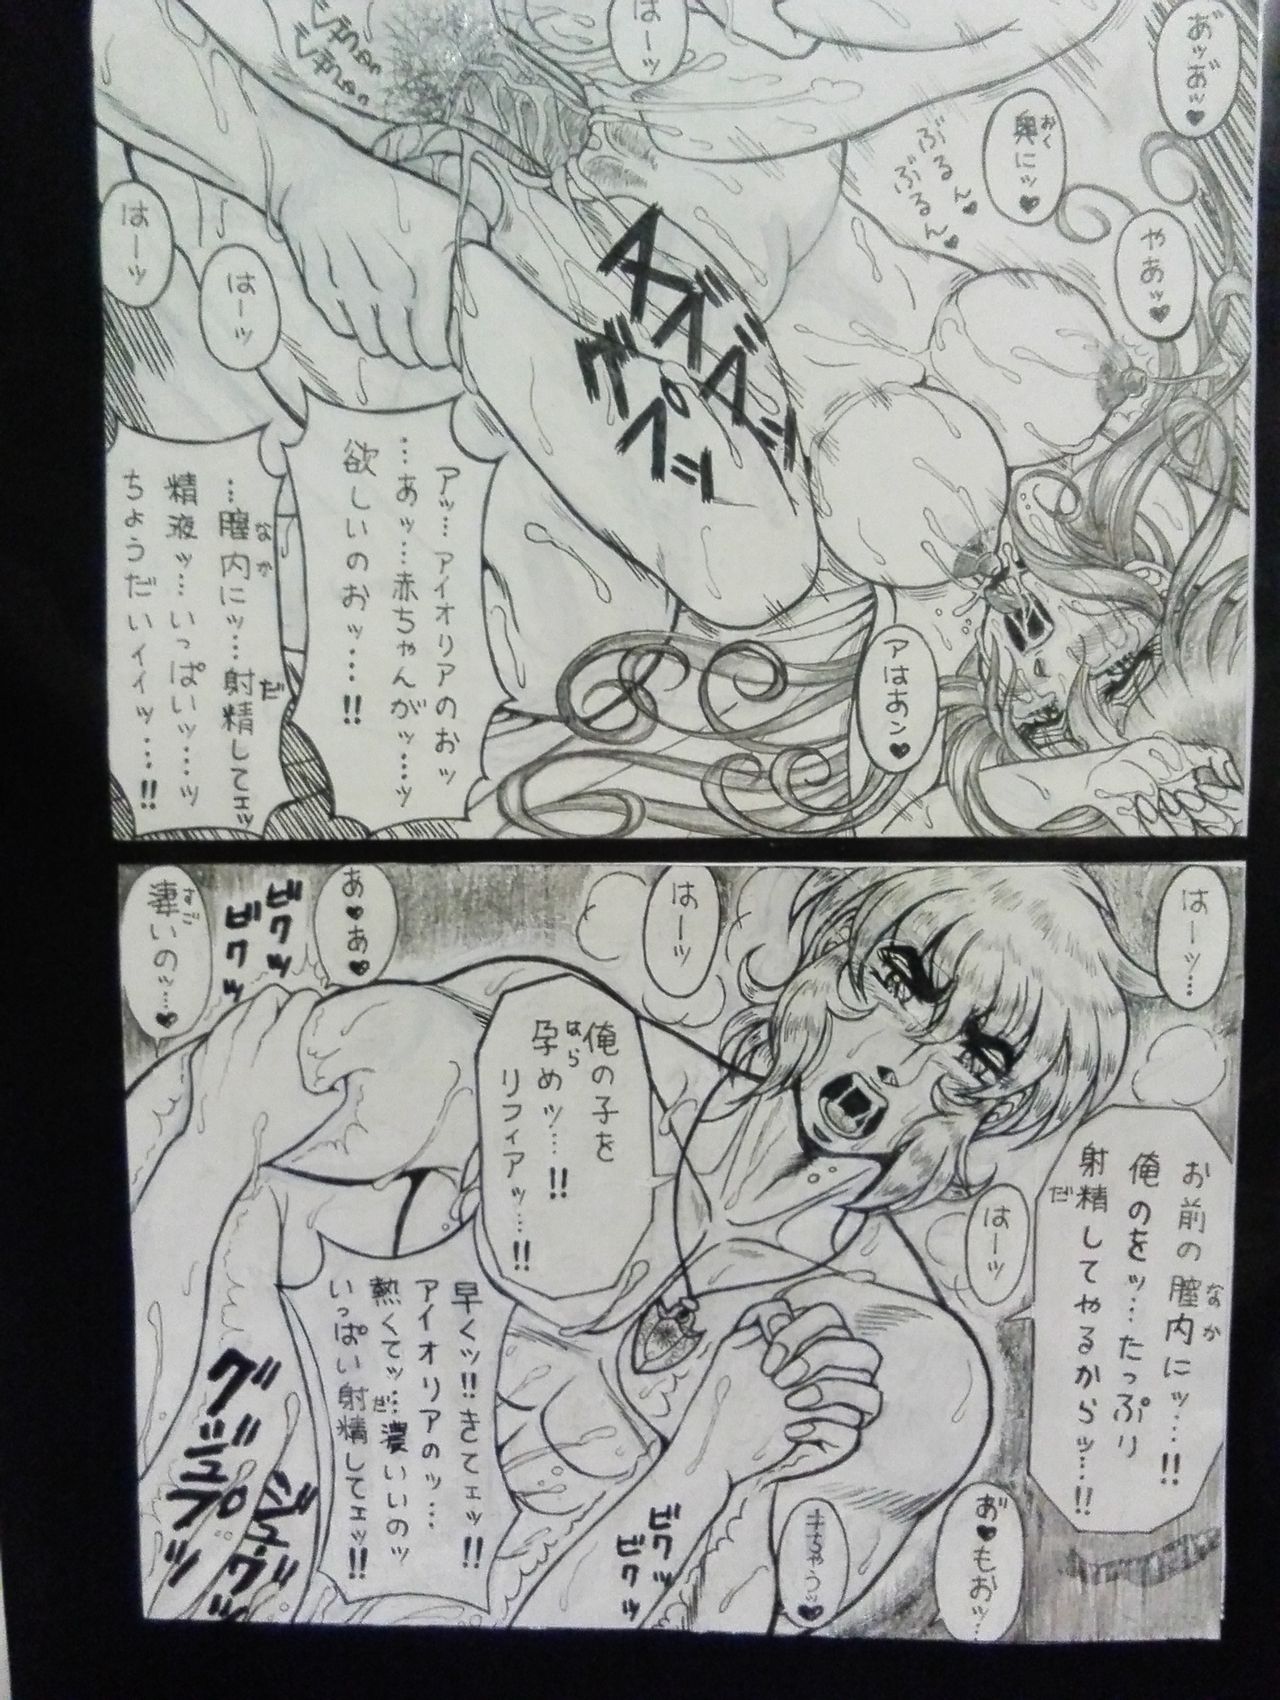 あ゛ッお゛ッ♥
奥にッ♥
おく
やあッ♥
ぶるん♥
ぶるん♥
はーッ
はーッ
はーッ
ズバンッ
グペッ
アはあン♥
アッ…アイオリアのおッ
…あッ…赤ちゃんがッ…ッ
欲しいのおッ…!!
…膣内にッ…射精してェッ
なか
だ
精液ッ…いっぱいッ…ッ
ちょうだいィィッ…!!
はーッ…
はーッ
はーッ
お前の膣内にッ…!!
なか
俺のをッ…たっぷり
射精してやるからッ…!!
だ
俺の子を
孕めッ…!!
はら
リフィアッ…!!
あ♥あ♥
凄いのッ…♥
すご
ビクッ
ビクッ
早くッ!!きてェッ!!
アイオリアのッ…
熱くてッ…濃いのッ
いっぱい射精してェッ!!
だ
お゛♥もおッ…
キちゃうッ♥
ビクッ
ビクッ
グジュプッ